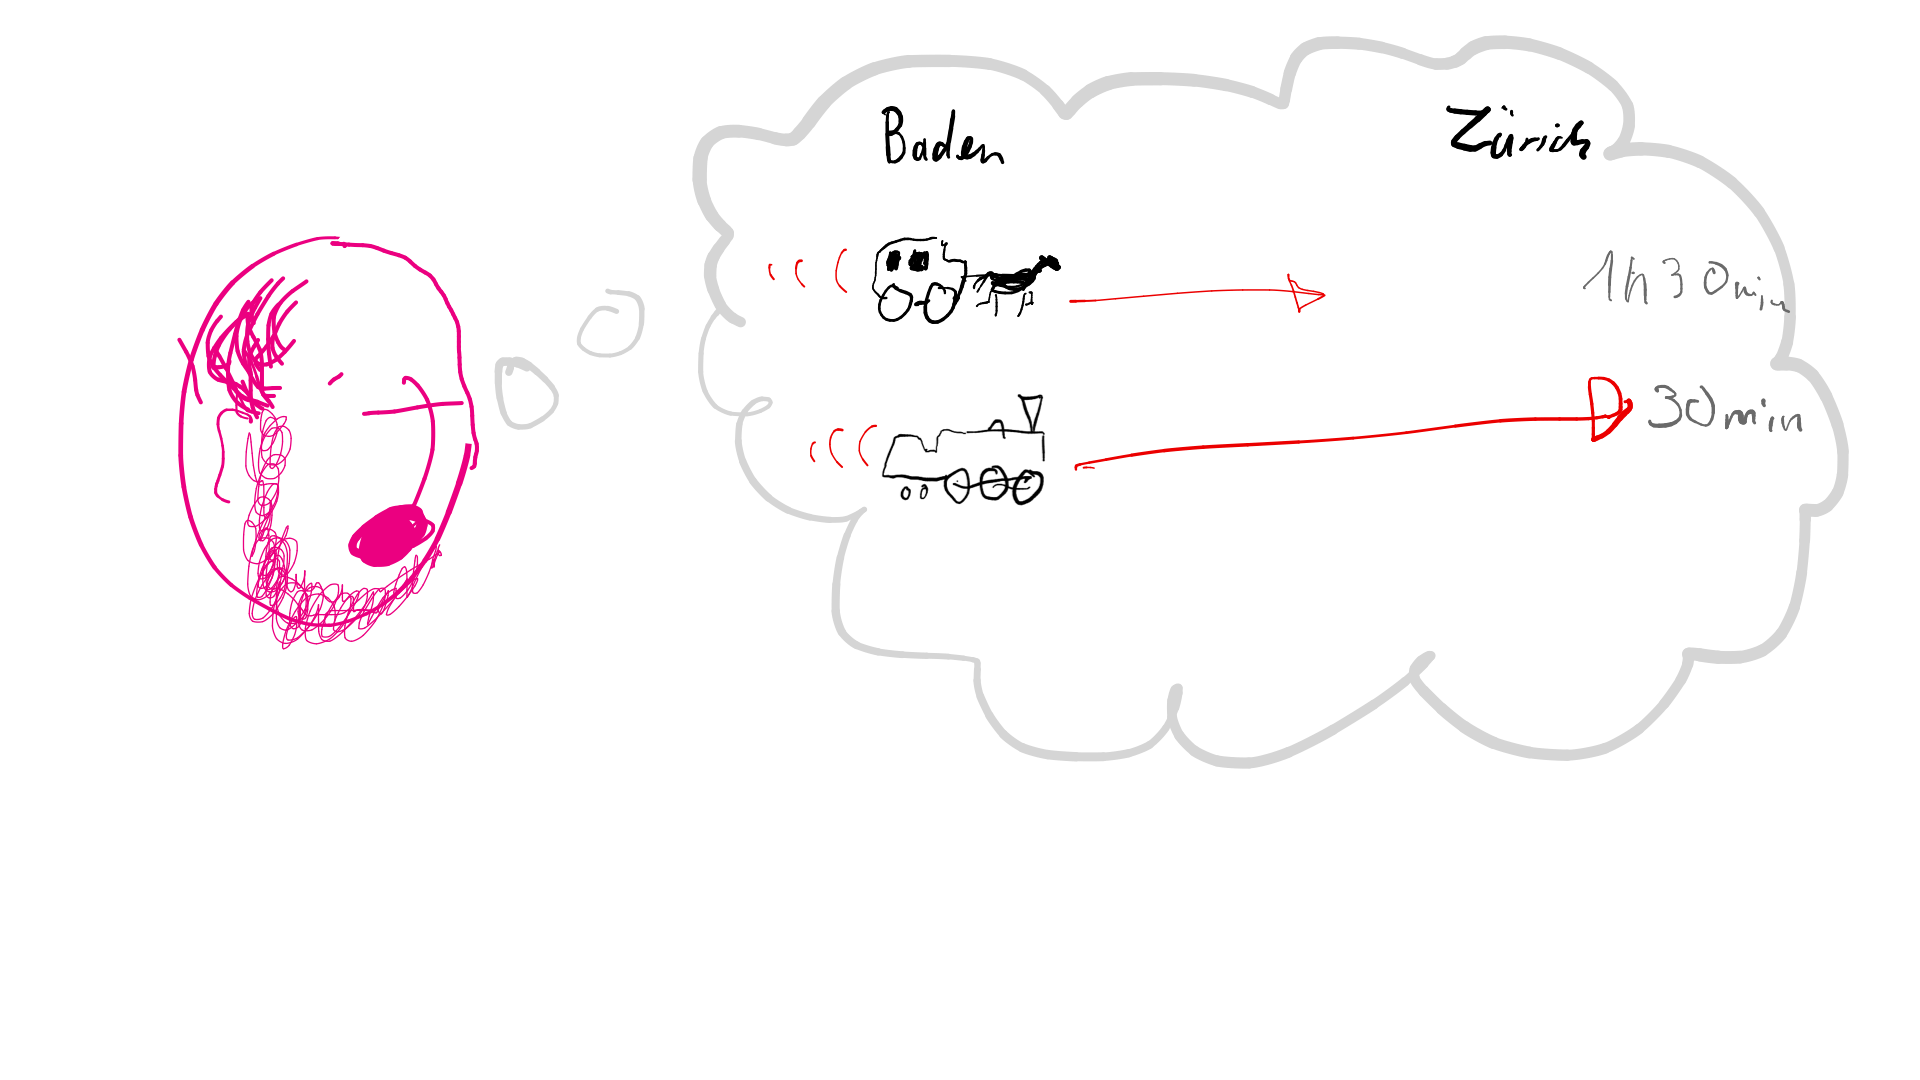 Baden Zürich
1h30min
30min